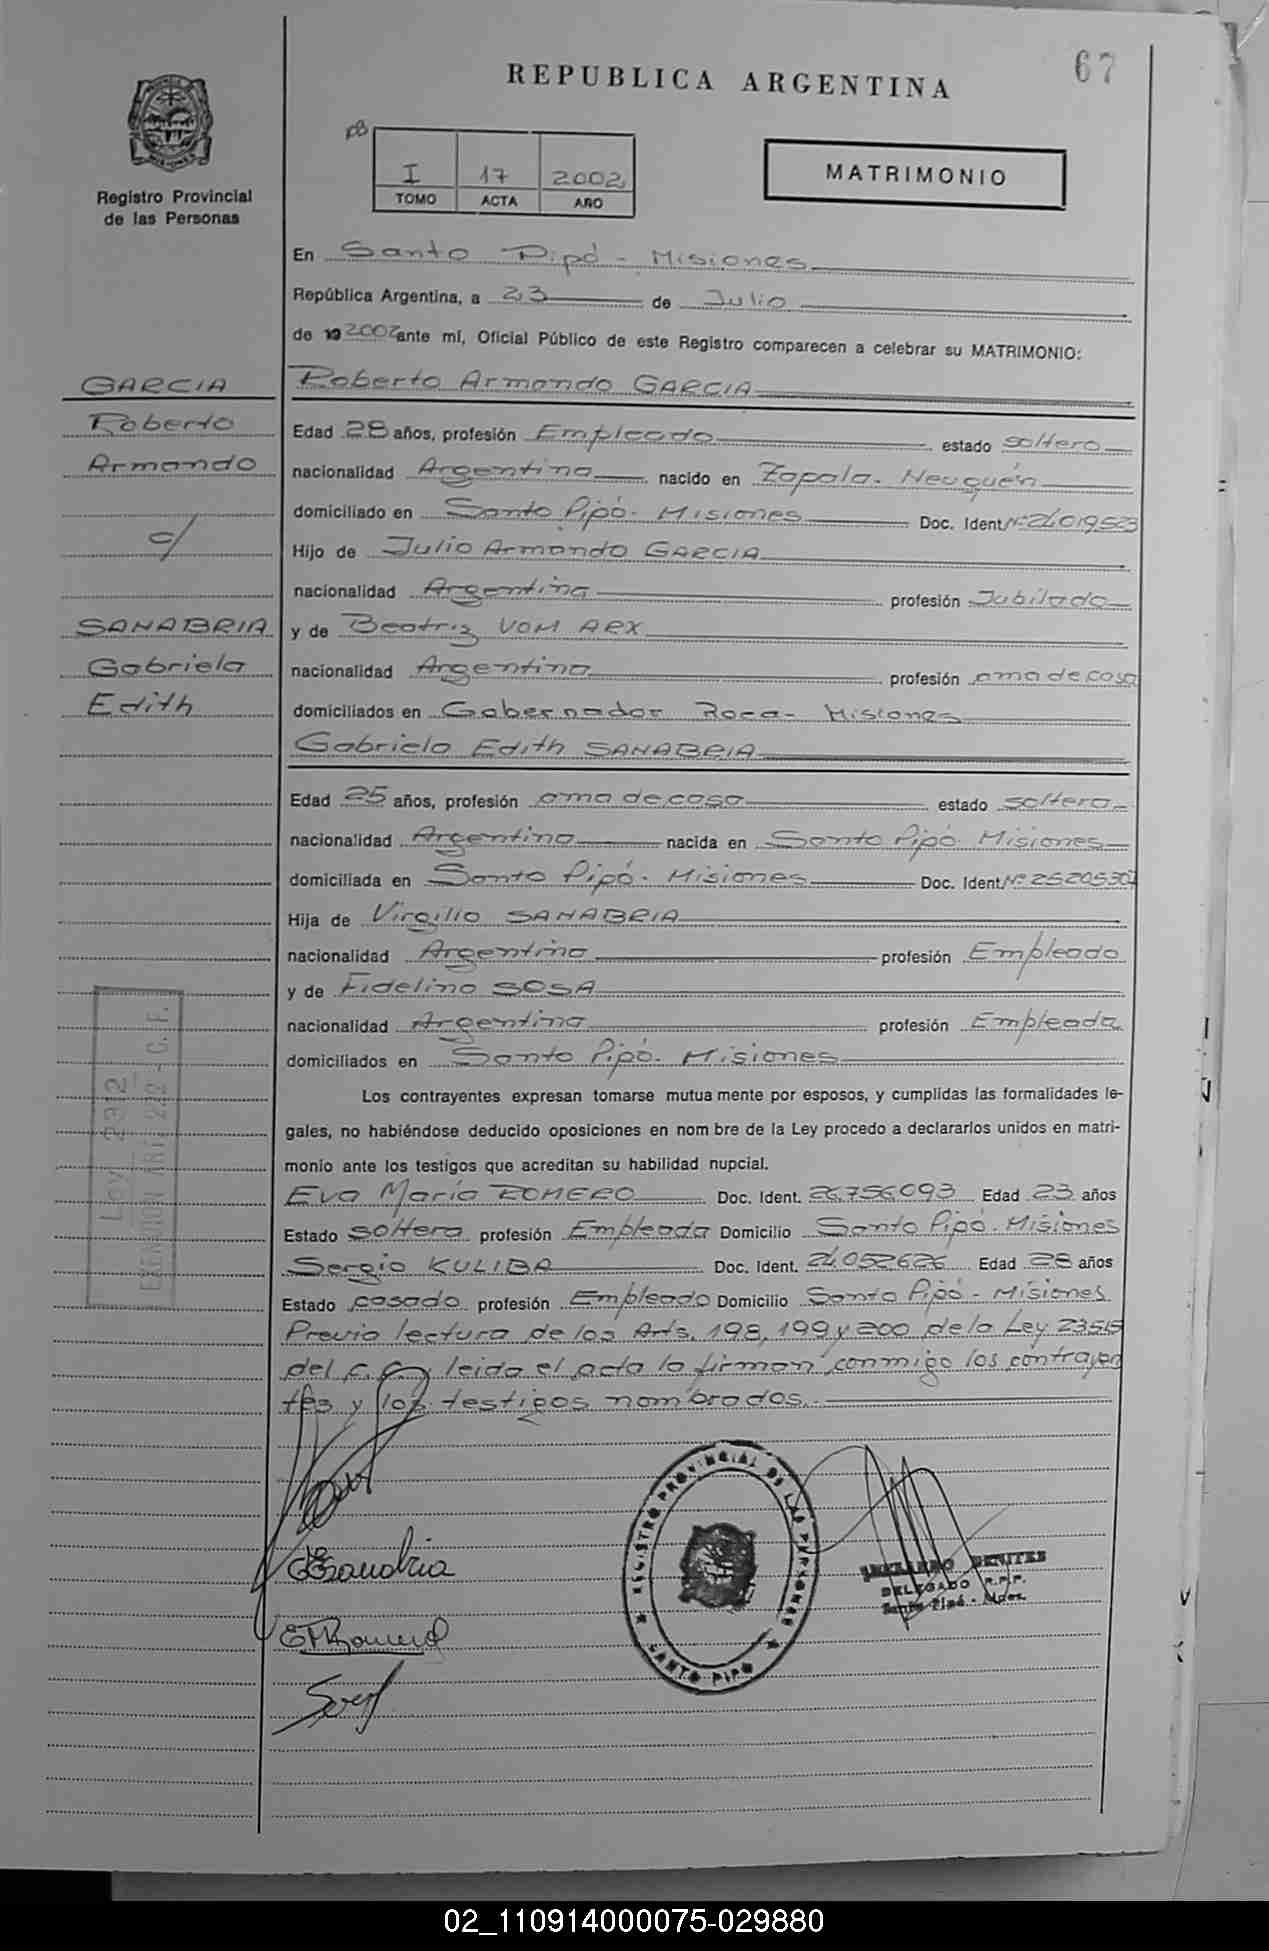 67
REPUBLICA ARGENTINA
Registro Provincial
de las Personas
I 17 2002
TOMO ACTA AÑO
MATRIMONIO
En Santo Pipó - Misiones
República Argentina, a 23 de Julio
de 19 2002 ante mí, Oficial Público de este Registro comparecen a celebrar su MATRIMONIO:
GARCIA
Roberto
Armando
c/
SANABRIA
Gabriela
Edith
Roberto Armando GARCIA
Edad 28 años, profesión Empleado estado soltero
nacionalidad Argentina nacido en Zapala - Neuquén
domiciliado en Santo Pipó - Misiones Doc. Ident. Nº 24019523
Hijo de Julio Armando GARCIA
nacionalidad Argentina profesión Jubilado
y de Beatriz VOM ARX
nacionalidad Argentina profesión ama de casa
domiciliados en Gobernador Roca - Misiones
Gabriela Edith SANABRIA
Edad 25 años, profesión ama de casa estado soltera
nacionalidad Argentina nacida en Santo Pipó - Misiones
domiciliada en Santo Pipó - Misiones Doc. Ident. Nº
Hija de Virgilio SANABRIA
nacionalidad Argentina profesión Empleado
y de Fidelina SOSA
nacionalidad Argentina profesión Empleada
domiciliados en Santo Pipó - Misiones
Los contrayentes expresan tomarse mutua mente por esposos, y cumplidas las formalidades le-
gales, no habiéndose deducido oposiciones en nom bre de la Ley procedo a declararlos unidos en matri-
monio ante los testigos que acreditan su habilidad nupcial.
Eva María ROMERO Doc. Ident. 26.756.093 Edad 23 años
Estado soltera profesión Empleada Domicilio Santo Pipó - Misiones
Sergio KULIBA Doc. Ident. 24.052.626 Edad 28 años
Estado casado profesión Empleado Domicilio Santo Pipó - Misiones
Previa lectura de los Arts. 198, 199 y 200 de la Ley 23515
del C.C. y leida el acta la firman conmigo los contrayen
tes y los testigos nombrados.
Ley 2312
EXENCION ART. 222 - C. F.
REGISTRO PROVINCIAL DE LAS PERSONAS
SANTO PIPÓ
BENITES
DELEGADO R.P.P.
Santo Pipó - Mnes.
02_110914000075-029880